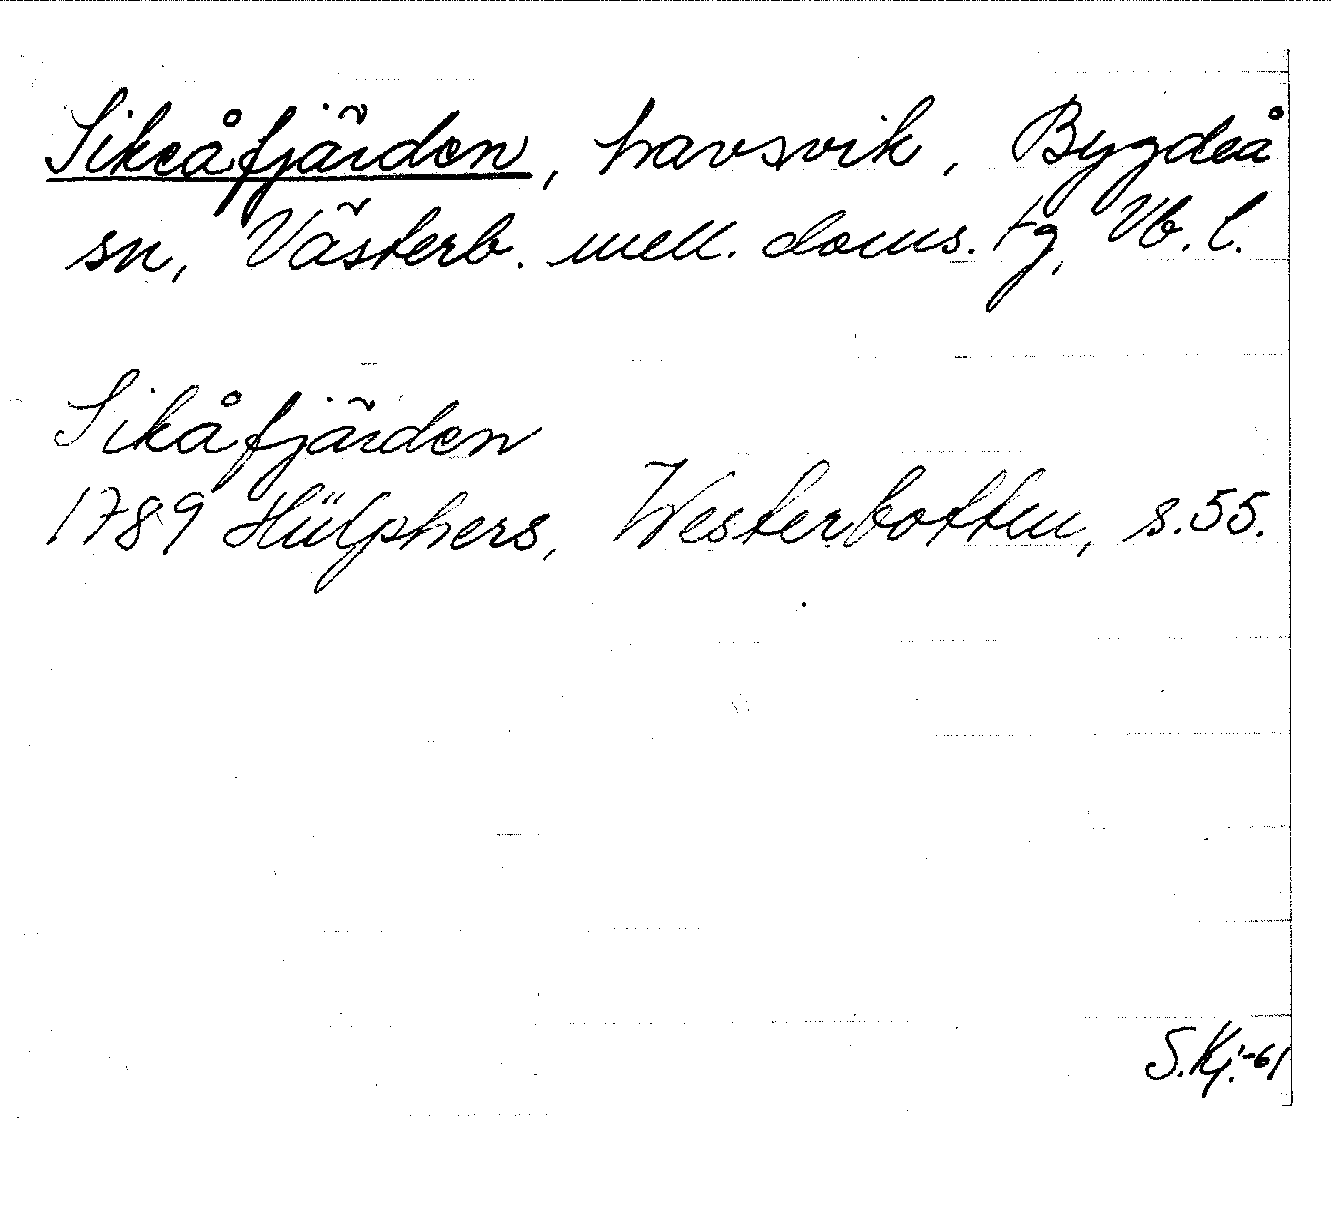 Sikeåfjärden, havsvik, Bygdeå
sn, Västerb. mell. doms. tg, Vb. l.
Sikåfjärden
1789 Hülphers, Westerbotten, s. 55.
S. Kj. -61